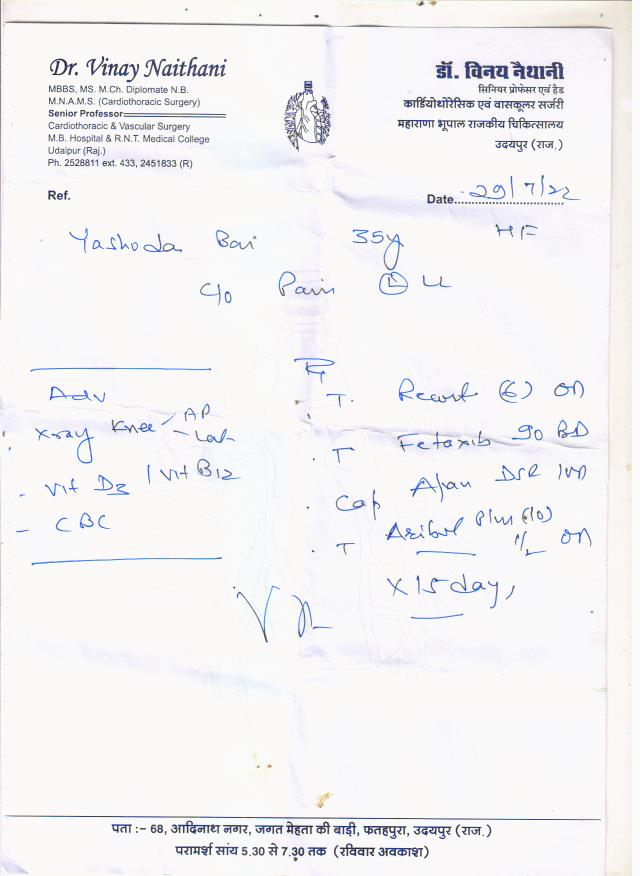 Dr. Vinay Naithani
MBBS, MS. M.Ch. Diplomate N.B.
M.N.A.M.S. (Cardiothoracic Surgery)
Senior Professor
Cardiothoracic & Vascular Surgery
M.B. Hospital & R.N.T. Medical College
Udaipur (Raj.)
Ph. 2528811 ext. 433, 2451833 (R)
डॉ. विनय नैथानी
सिनियर प्रोफेसर एवं हैड
कार्डियोथोरेसिक एवं वासकूलर सर्जरी
महाराणा भूपाल राजकीय चिकित्सालय
उदयपुर (राज.)
Ref.
Date 29/7/22
Yashoda Bai 35y
c/o Pain (L) LL
Adv
Xray Knee AP
Lat
- Vit D3 / Vit B12
- CBC
Rx
T. (6) OD
T 90 BD
Cap DSR
T Plus (10) 1/2 OD
X 15 days
पता :– 68, आदिनाथ नगर, जगत मेहता की बाड़ी, फतहपुरा, उदयपुर (राज.)
परामर्श सांय 5.30 से 7.30 तक (रविवार अवकाश)